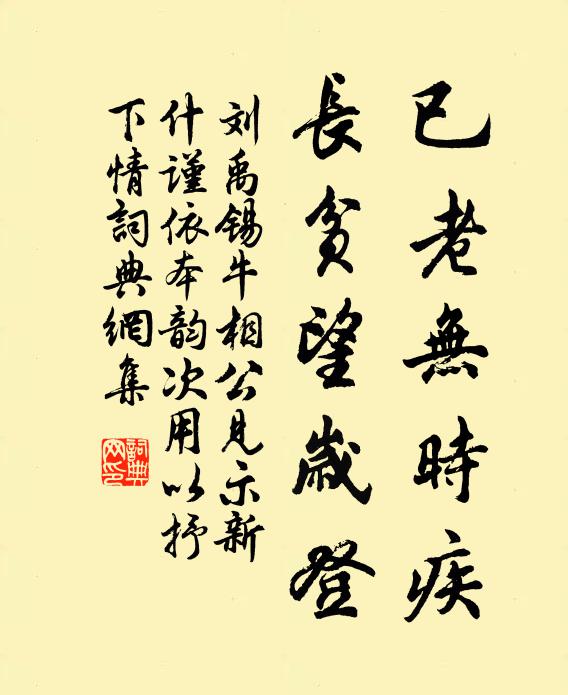 已老無時疾
長貧望歲登
刘禹锡牛相公見示新
什謹依本韵次用以抒
下情詞典網集
詞典
网印